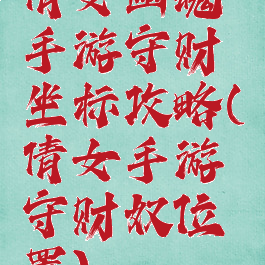 倩女幽魂
手游守财
坐标攻略(
倩女手游
守财奴位
置)